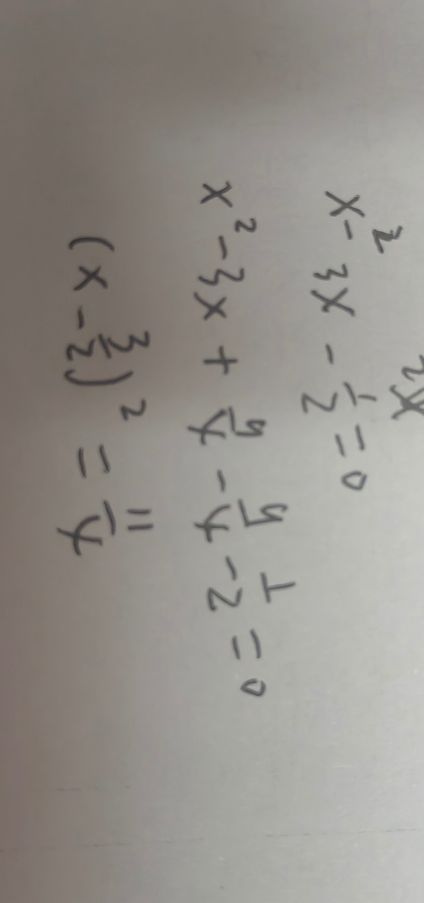 x² - 3x - 1/2 = 0
x² - 3x + 9/4 - 9/4 - 1/2 = 0
(x - 3/2)² = 11/4